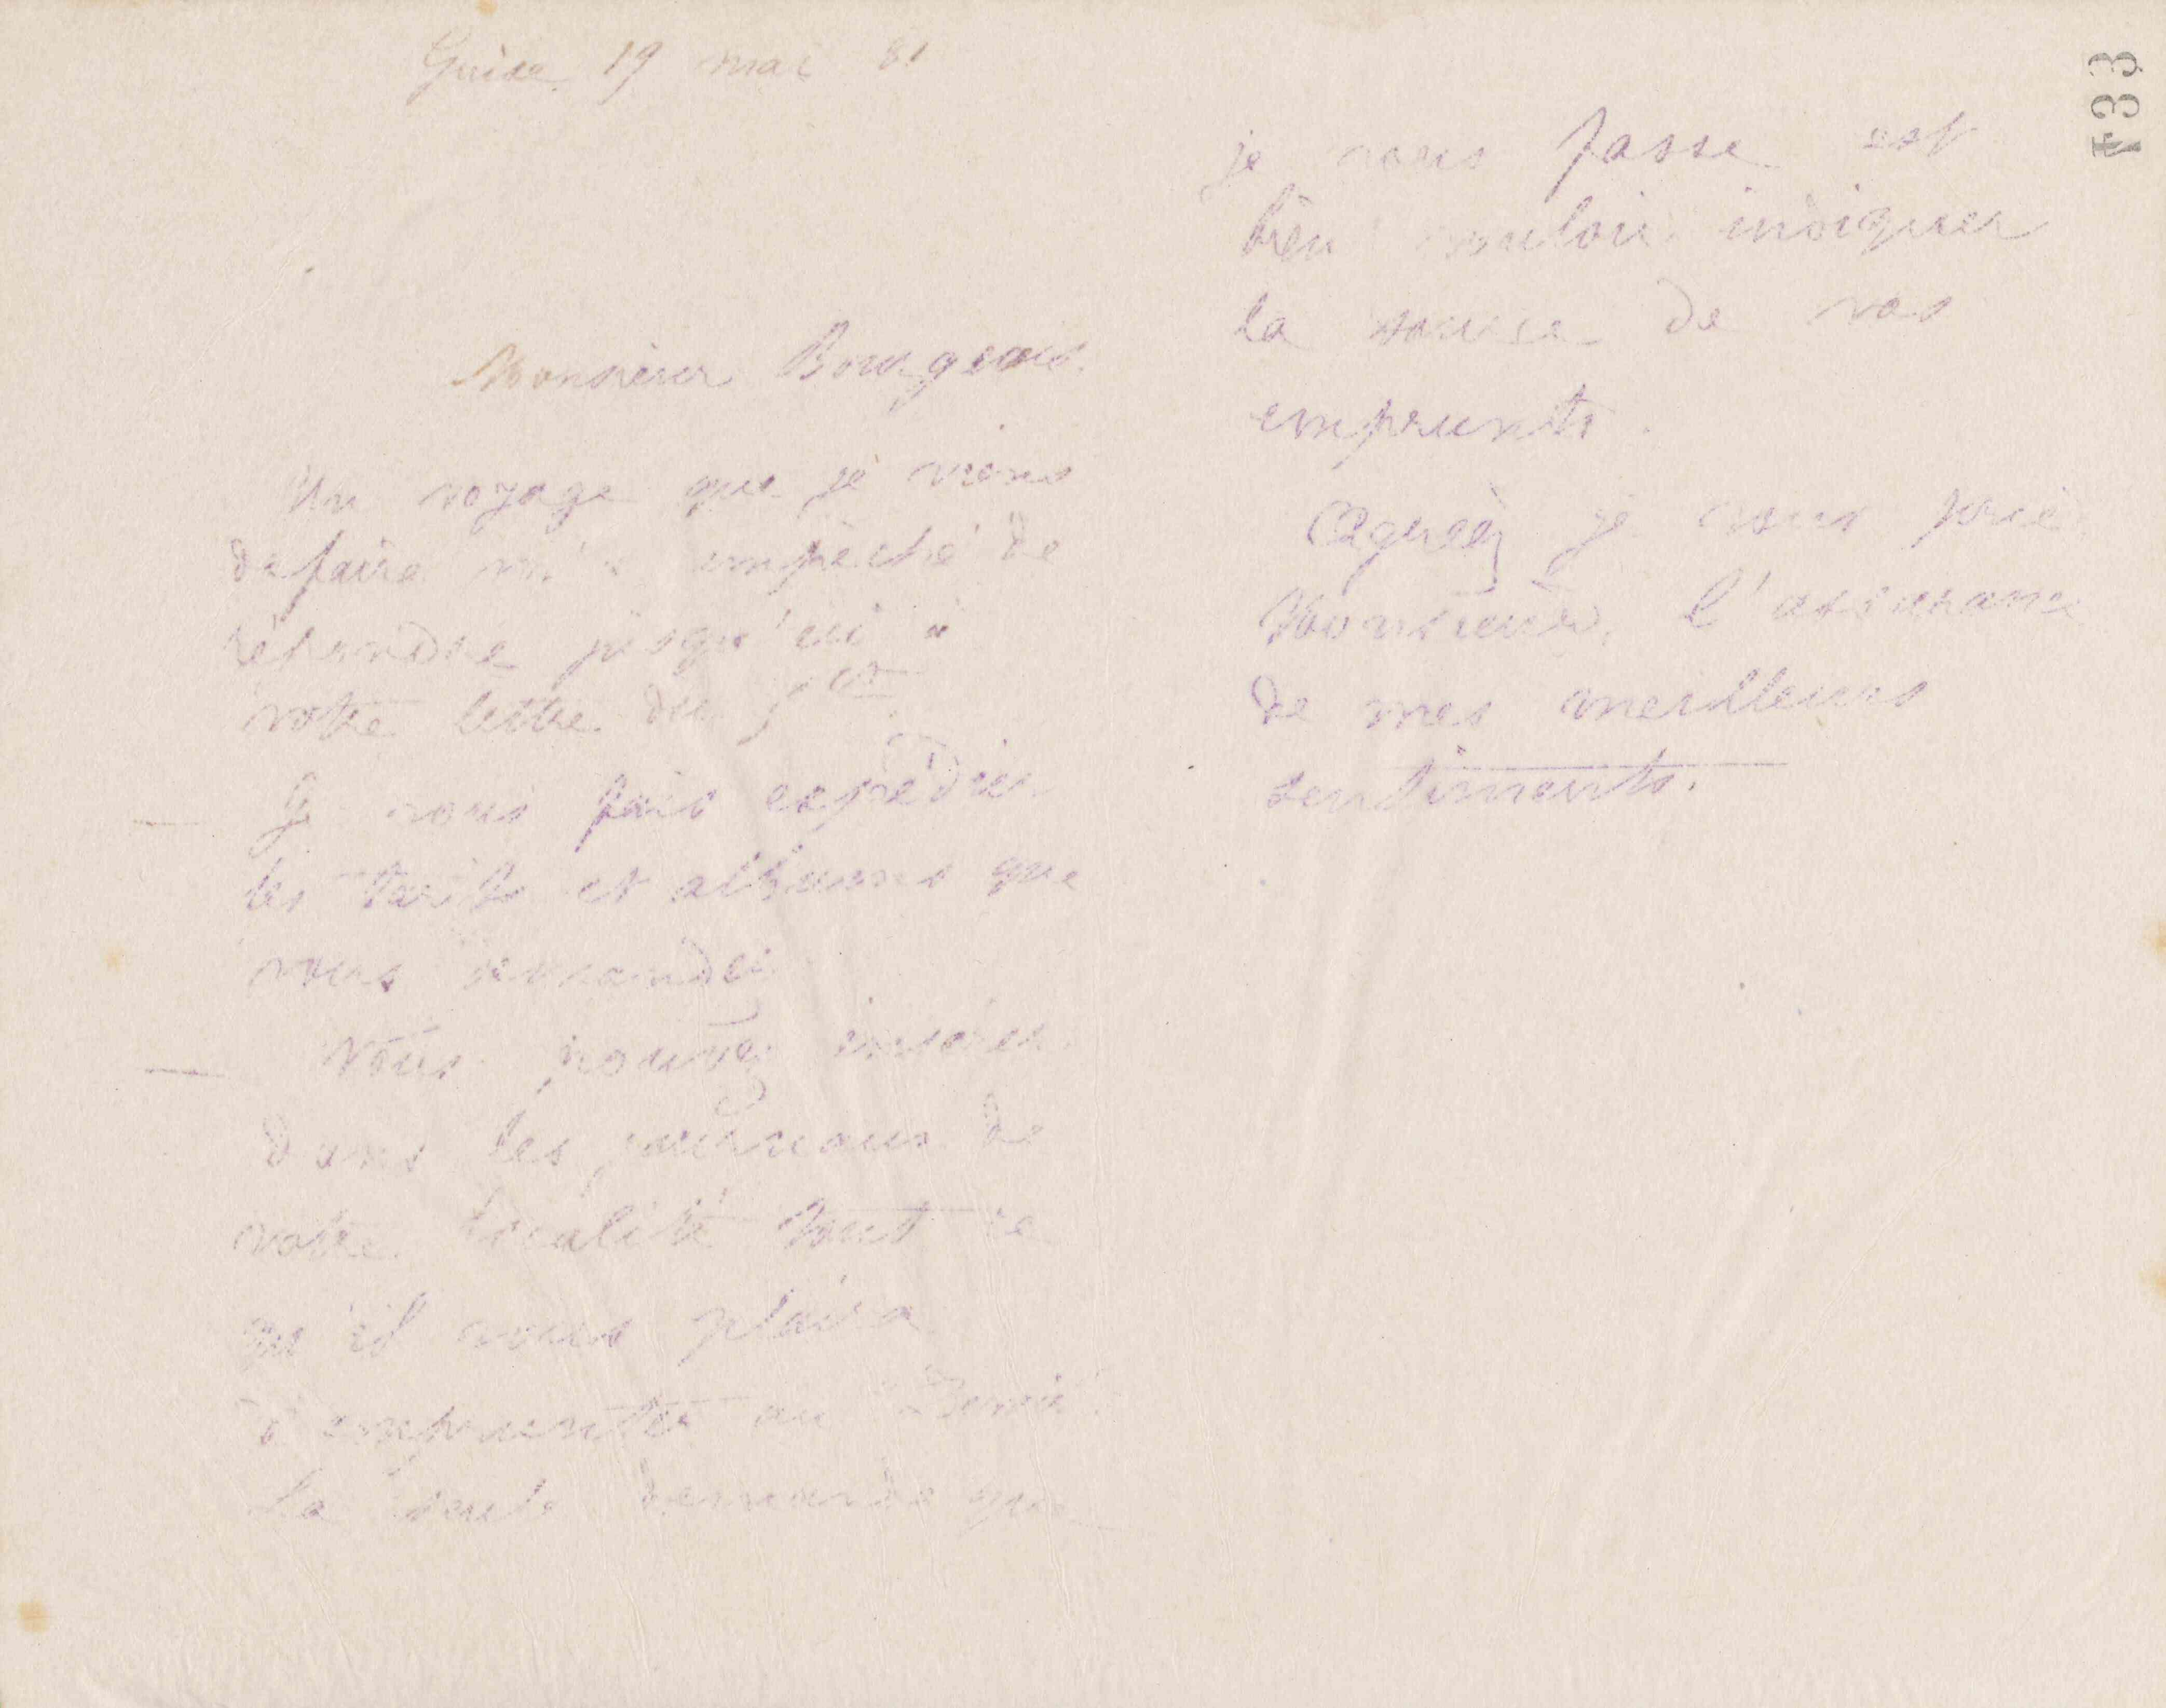 Guise 19 mai 81
Monsieur Bourgeois.
Un voyage que je viens
de faire m'a empêché de
répondre jusqu'ici à
votre lettre du 5 ct
Je vous fais expédier
les tarifs et albums que
vous demandez
Vous pouvez insérer
dans les journaux de
votre localité tout ce
qu'il vous plaira
d'emprunter au Devoir.
La seule demande que
je vous fasse est
bien vouloir indiquer
la source de vos
emprunts.
Agréez je vous prie
Monsieur, l'assurance
de mes meilleurs
sentiments.
733